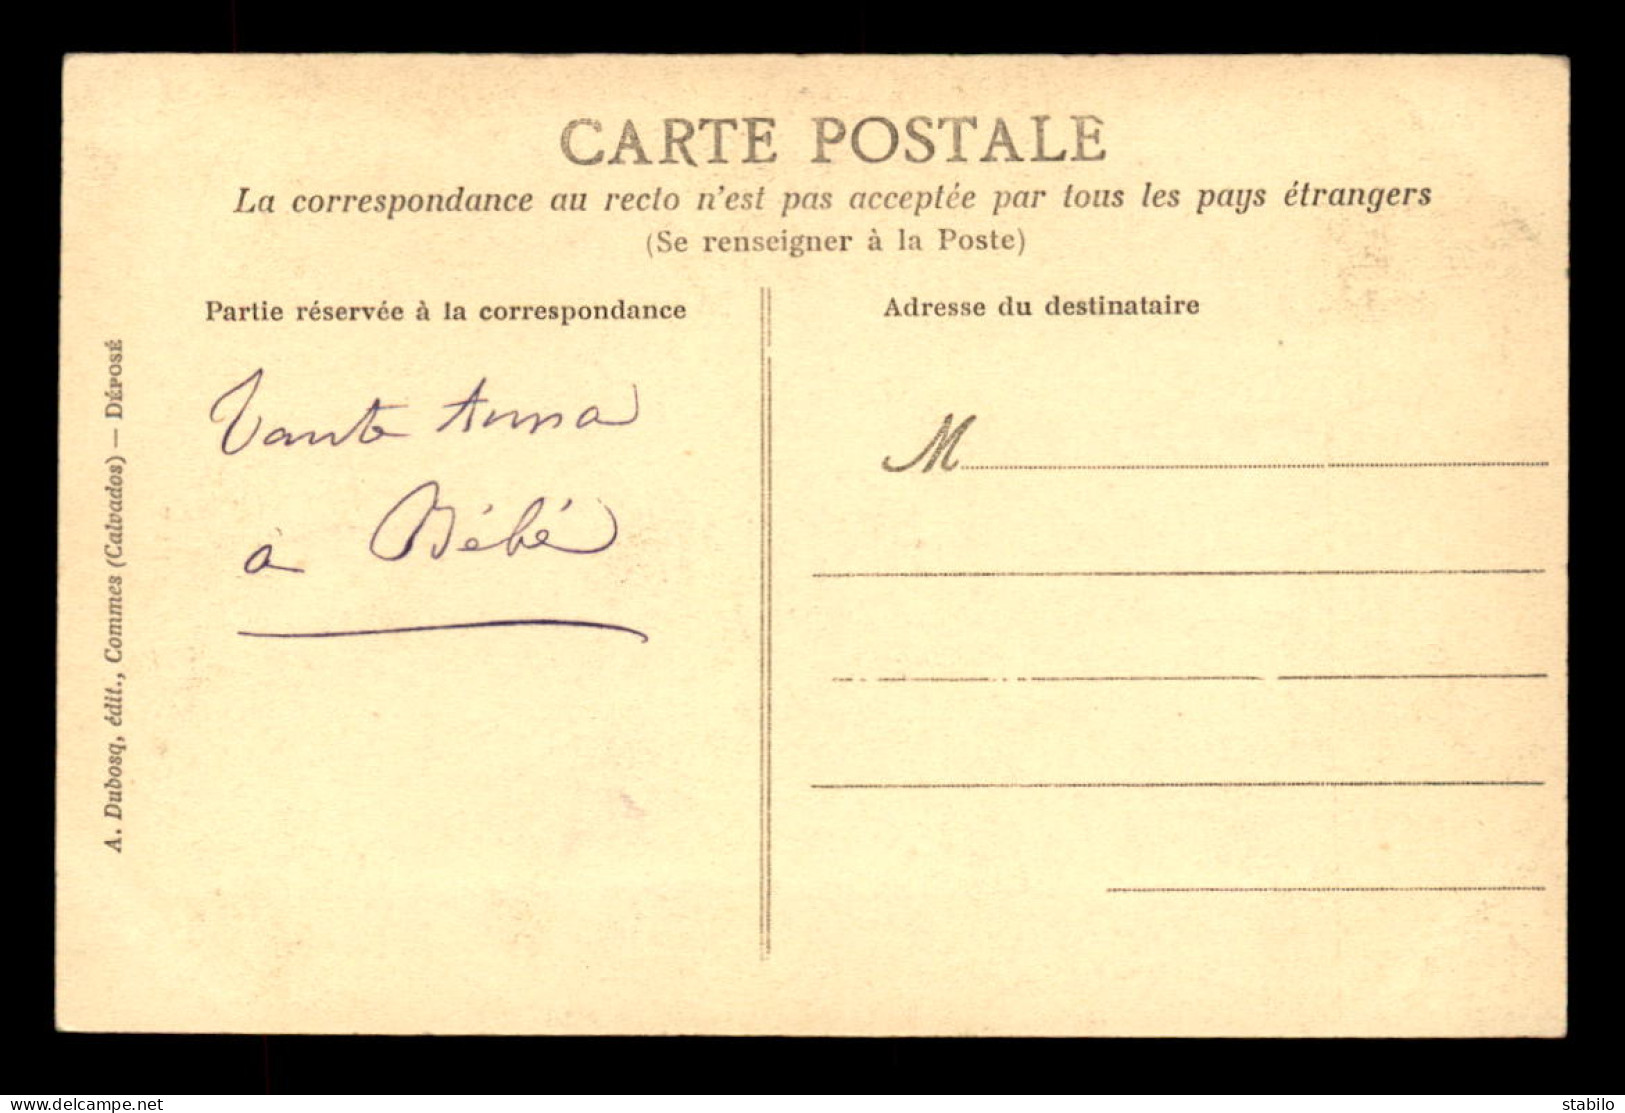 CARTE POSTALE
La correspondance au recto n'est pas acceptée par tous les pays étrangers
(Se renseigner à la Poste)
Partie réservée à la correspondance
Tante Anna
à Bébé
Adresse du destinataire
M
A. Dubosq, édit., Commes (Calvados) — DÉPOSÉ
www.delcampe.net
stabilo